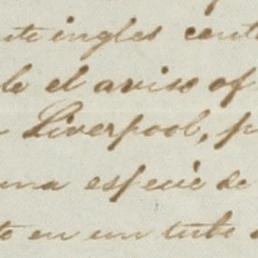 ute ingles cont
le el aviso of
Liverpool, p
una especie de
to en un tubo